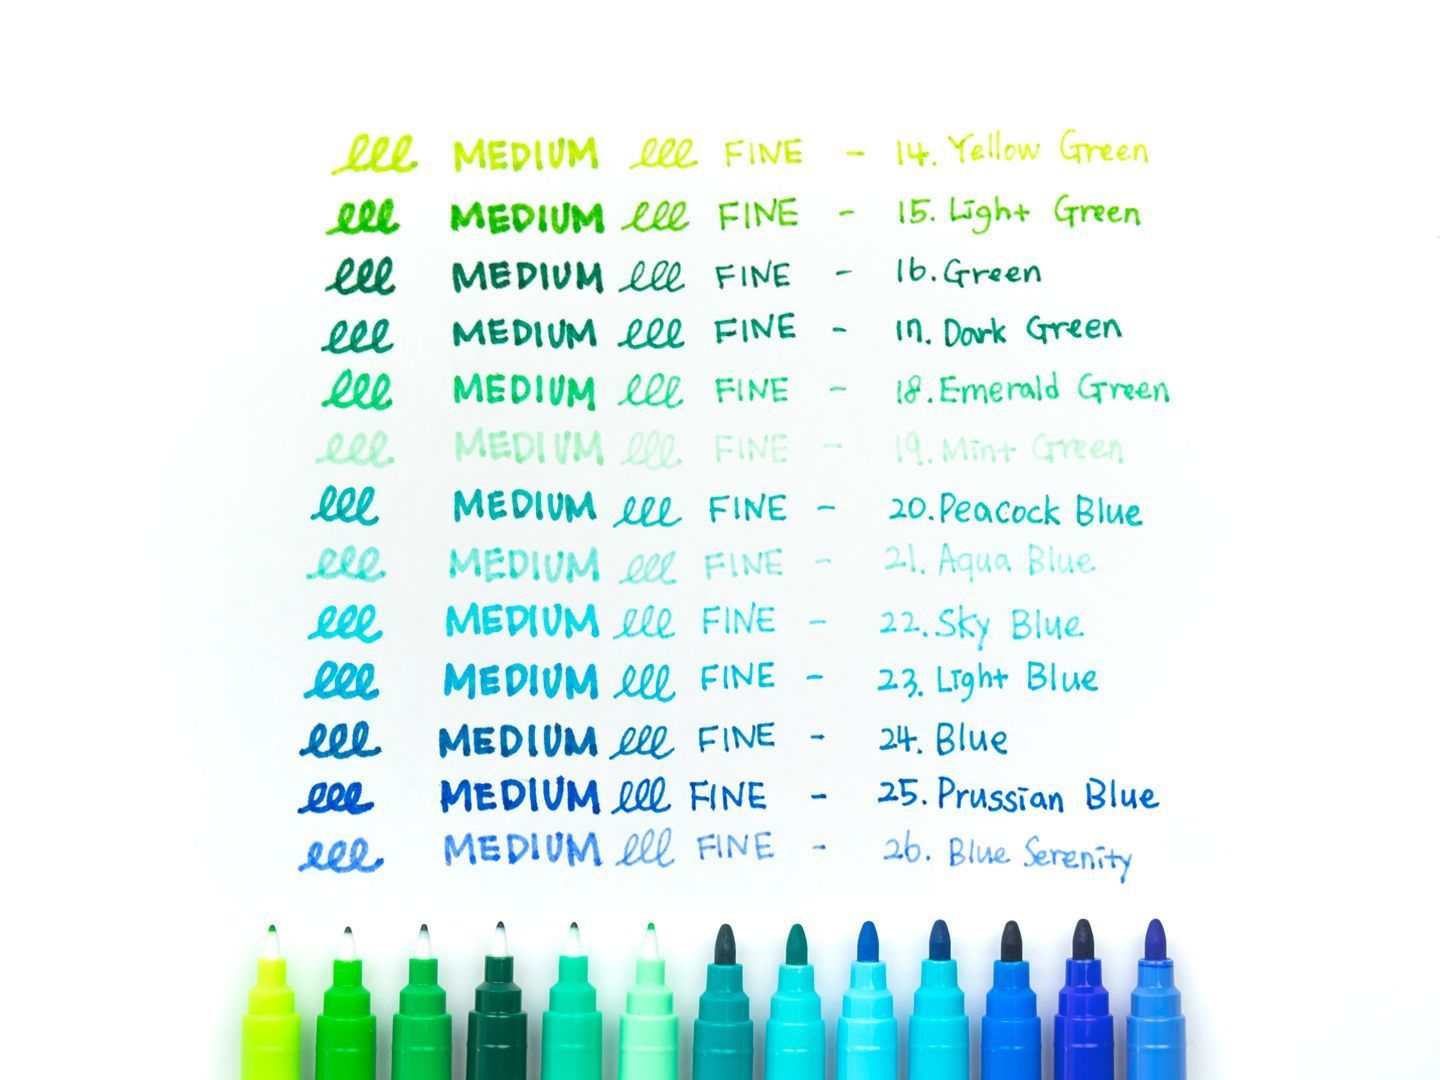 lll MEDIUM lll FINE - 14. Yellow Green
lll MEDIUM lll FINE - 15. Light Green
lll MEDIUM lll FINE - 16. Green
lll MEDIUM lll FINE - 17. Dark Green
lll MEDIUM lll FINE - 18. Emerald Green
lll MEDIUM lll FINE - 19. Mint Green
lll MEDIUM lll FINE - 20. Peacock Blue
lll MEDIUM lll FINE - 21. Aqua Blue
lll MEDIUM lll FINE - 22. Sky Blue
lll MEDIUM lll FINE - 23. Light Blue
lll MEDIUM lll FINE - 24. Blue
lll MEDIUM lll FINE - 25. Prussian Blue
lll MEDIUM lll FINE - 26. Blue Serenity